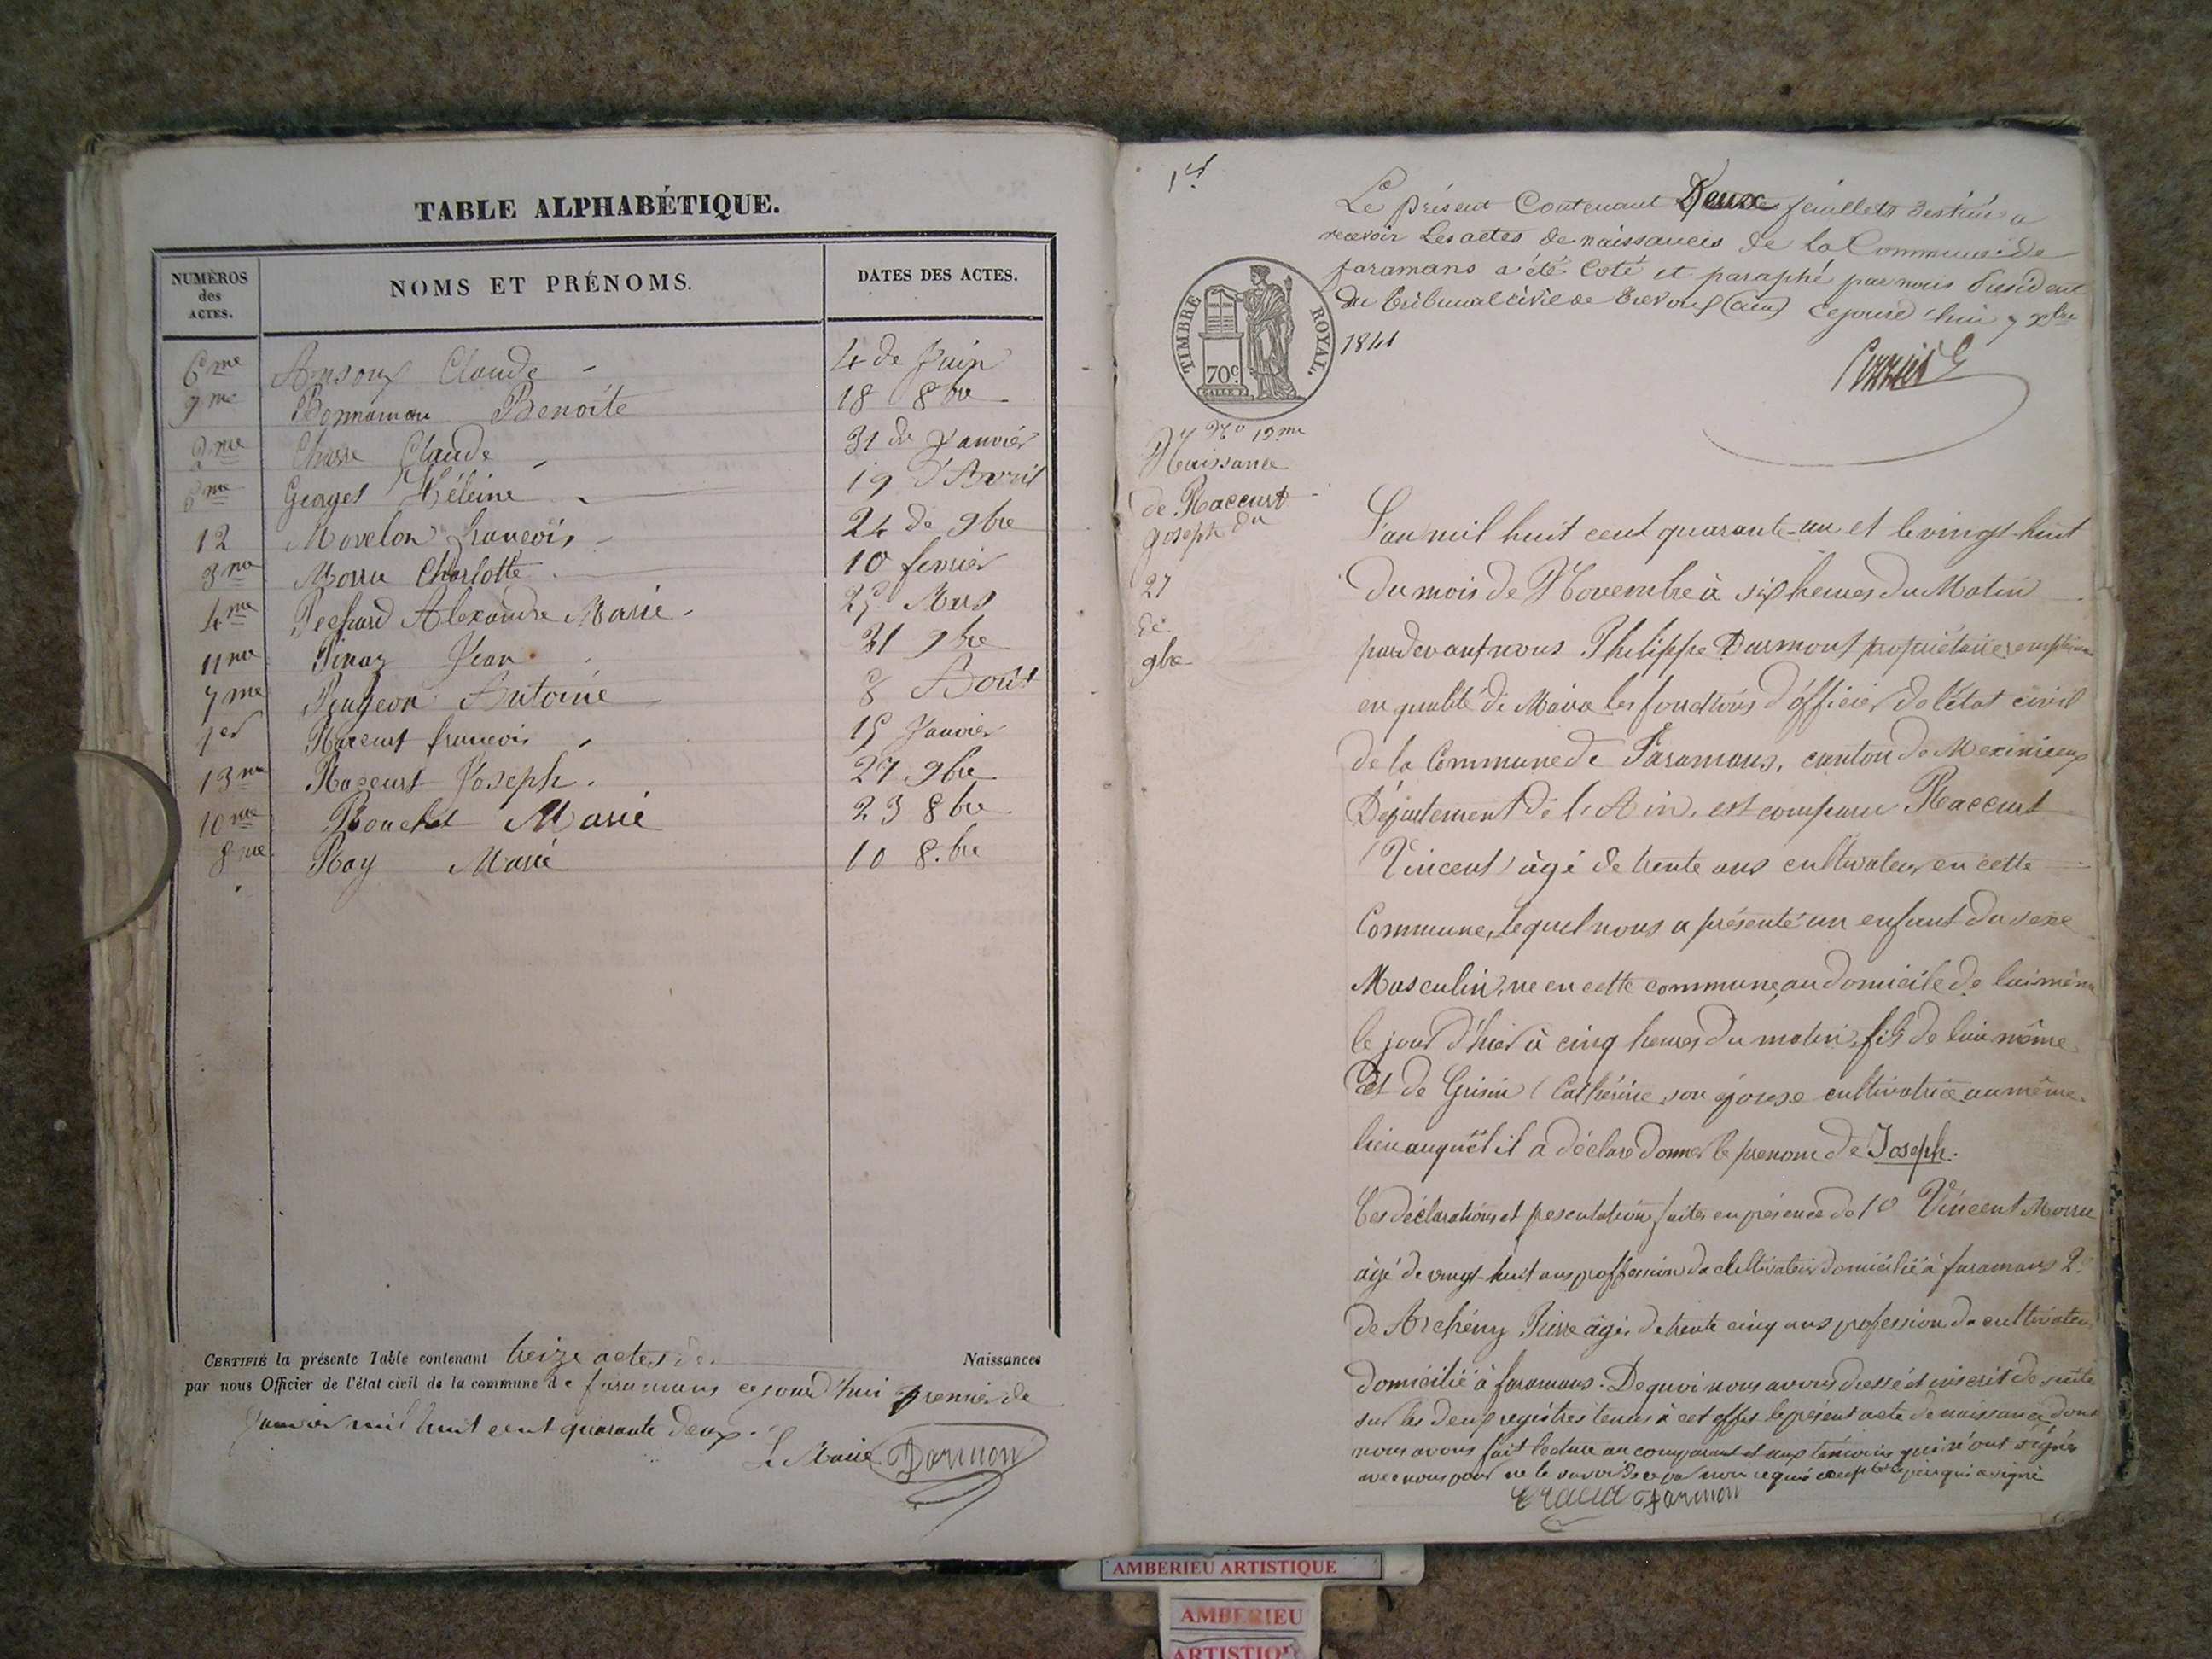 TABLE ALPHABÉTIQUE.
NUMÉROS des ACTES. NOMS ET PRÉNOMS. DATES DES ACTES.
6me Ansoux Claude 4 de Juin
9me Bonnamour Benoîte 18 8bre
2me Chasse Claude 31 de Janvier
5me Georges Héleine 19 d'Avril
12 Movelon francois 24 de 9bre
3me Morru Charlotte 10 fevrier
4me Alexandre Marie 25 Mars
11me Pinaz Jean 21 9bre
7me Antoine 8 Août
1er Raccurt francois 15 Janvier
13me Raccurt Joseph. 27 9bre
10me Bouchet Marie 23 8bre
8me Ray Marie 10 8.bre
CERTIFIÉ la présente Table contenant treize actes de Naissances
par nous Officier de l'état civil de la commune de faramans cejourd'hui premier de
Janvier mil huit cent quarante deux.
Le Maire Darmon
1er
Le présent Contenant Deux feuillets destiné a
recevoir Les actes de naissances de la Commune de
faramans a été Coté et paraphé par nous Président
du tribunal civil de Trevoux (ain) cejourd'hui 7 xbre
1841
TIMBRE ROYAL.
70c.
No 13me
Naissance
de Raccurt
Joseph du
27
de
9bre
L'an mil huit cent quarante-un et le vingt-huit
du mois de Novembre à six heures du Matin
pardevant nous Philippe Darmont propriétaire remplissant
en qualité de Maire les fonctions d'officier de l'état civil
de la Commune de Faramans, canton de Meximieux
Département de l'Ain, est comparu Raccurt
Vincent âgé de trente ans cultivateur en cette
Commune, lequel nous a présenté un enfant du sexe
Masculin, né en cette commune, au domicile de lui même
le jour d'hier à cinq heures du matin, fils de lui même
et de Grisin Cathérine son épouse cultivatrice au même
lieu auquel il a déclaré donner le prenom de Joseph.
Ces déclarations et presentation faites en présence de 1o Vincent Morru
âgé de vingt-huit ans proffession de cultivateur domicilié à faramans 2o
de Archény Pierre âgé de trente cinq ans profession de cultivateur
domicilié à faramans. De quoi nous avons dressé et inscrit de suite
sur les deux registres tenus à cet effet le présent acte de naissance dont
nous avons fait lecture au comparant et aux témoins qui n'ont signés
avec nous pour ne le savoir de ce par nous requis excepté le père qui a signé
Darmon
AMBERIEU ARTISTIQUE
AMBERIEU
ARTISTIQUE